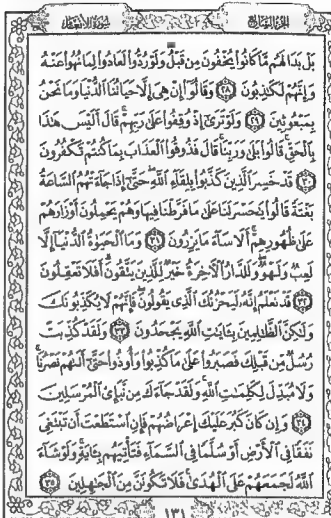 الجزء السابع
سورة الأنعام
بَلْ بَدَا لَهُم مَّا كَانُوا۟ يُخْفُونَ مِن قَبْلُ وَلَوْ رُدُّوا۟ لَعَادُوا۟ لِمَا نُهُوا۟ عَنْهُ
وَإِنَّهُمْ لَكَـٰذِبُونَ ٢٨ وَقَالُوٓا۟ إِنْ هِىَ إِلَّا حَيَاتُنَا ٱلدُّنْيَا وَمَا نَحْنُ
بِمَبْعُوثِينَ ٢٩ وَلَوْ تَرَىٰٓ إِذْ وُقِفُوا۟ عَلَىٰ رَبِّهِمْ قَالَ أَلَيْسَ هَـٰذَا
بِٱلْحَقِّ قَالُوا۟ بَلَىٰ وَرَبِّنَا قَالَ فَذُوقُوا۟ ٱلْعَذَابَ بِمَا كُنتُمْ تَكْفُرُونَ
٣٠ قَدْ خَسِرَ ٱلَّذِينَ كَذَّبُوا۟ بِلِقَآءِ ٱللَّهِ حَتَّىٰٓ إِذَا جَآءَتْهُمُ ٱلسَّاعَةُ
بَغْتَةً قَالُوا۟ يَـٰحَسْرَتَنَا عَلَىٰ مَا فَرَّطْنَا فِيهَا وَهُمْ يَحْمِلُونَ أَوْزَارَهُمْ
عَلَىٰ ظُهُورِهِمْ أَلَا سَآءَ مَا يَزِرُونَ ٣١ وَمَا ٱلْحَيَوٰةُ ٱلدُّنْيَآ إِلَّا
لَعِبٌ وَلَهْوٌ وَلَلدَّارُ ٱلْـَٔاخِرَةُ خَيْرٌ لِّلَّذِينَ يَتَّقُونَ أَفَلَا تَعْقِلُونَ
٣٢ قَدْ نَعْلَمُ إِنَّهُۥ لَيَحْزُنُكَ ٱلَّذِى يَقُولُونَ فَإِنَّهُمْ لَا يُكَذِّبُونَكَ
وَلَـٰكِنَّ ٱلظَّـٰلِمِينَ بِـَٔايَـٰتِ ٱللَّهِ يَجْحَدُونَ ٣٣ وَلَقَدْ كُذِّبَتْ
رُسُلٌ مِّن قَبْلِكَ فَصَبَرُوا۟ عَلَىٰ مَا كُذِّبُوا۟ وَأُوذُوا۟ حَتَّىٰٓ أَتَىٰهُمْ نَصْرُنَا
وَلَا مُبَدِّلَ لِكَلِمَـٰتِ ٱللَّهِ وَلَقَدْ جَآءَكَ مِن نَّبَإِى۟ ٱلْمُرْسَلِينَ
٣٤ وَإِن كَانَ كَبُرَ عَلَيْكَ إِعْرَاضُهُمْ فَإِنِ ٱسْتَطَعْتَ أَن تَبْتَغِىَ
نَفَقًا فِى ٱلْأَرْضِ أَوْ سُلَّمًا فِى ٱلسَّمَآءِ فَتَأْتِيَهُم بِـَٔايَةٍ وَلَوْ شَآءَ
ٱللَّهُ لَجَمَعَهُمْ عَلَى ٱلْهُدَىٰ فَلَا تَكُونَنَّ مِنَ ٱلْجَـٰهِلِينَ ٣٥
١٣١